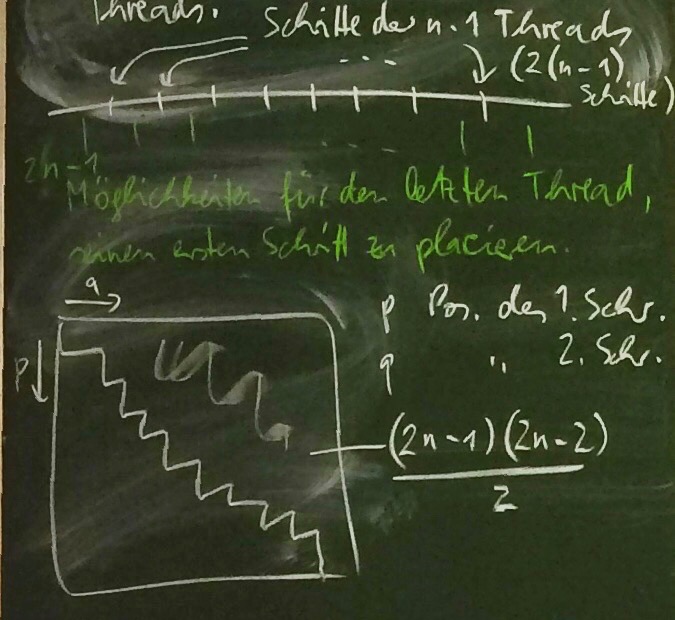 Threads.
Schritte der n-1 Threads
... (2(n-1)
Schritte)
2n-1
Möglichkeiten für den letzten Thread,
seinen ersten Schritt zu placieren.
q
p Pos. des 1. Schr.
p
q " 2. Schr.
(2n-1)(2n-2)
2